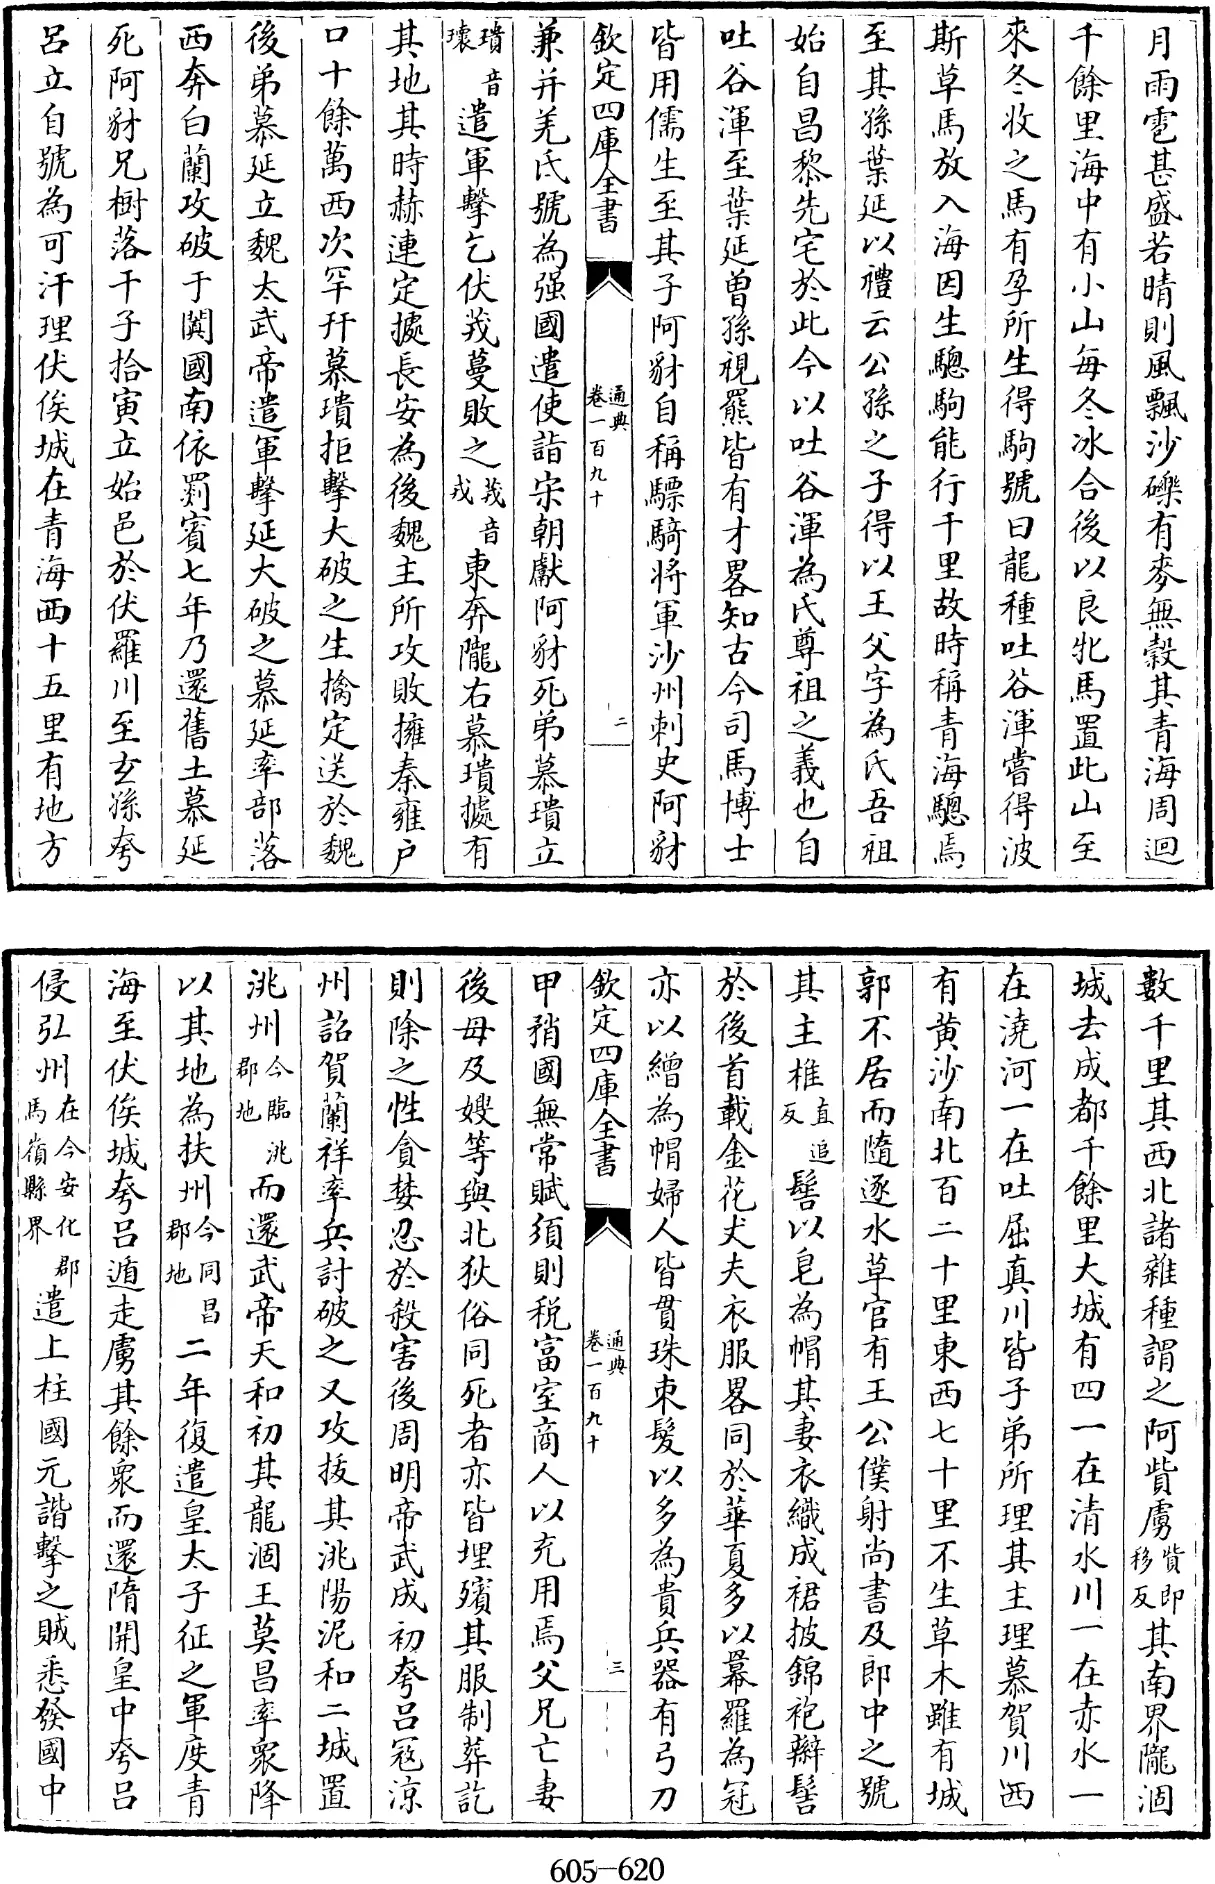 月雨雹甚盛若晴則風飄沙礫有麥無穀其青海周迴
千餘里海中有小山每冬冰合後以良牝馬置此山至
來冬收之馬有孕所生得駒號曰龍種吐谷渾嘗得波
斯草馬放入海因生驄駒能行千里故時稱青海驄焉
至其孫葉延以禮云公孫之子得以王父字為氏吾祖
始自昌黎先宅於此今以吐谷渾為氏尊祖之義也自
吐谷渾至葉延曾孫視羆皆有才畧知古今司馬博士
皆用儒生至其子阿豺自稱驃騎將軍沙州刺史阿豺
欽定四庫全書 通典卷一百九十 二
兼并羌氏號為强國遣使詣宋朝獻阿豺死弟慕璝立
璝音瓌遣軍擊乞伏茂蔓敗之茂音戎東奔隴右慕璝據有
其地其時赫連定據長安為後魏主所攻敗擁秦雍户
口十餘萬西次罕幵慕璝拒擊大破之生擒定送於魏
後弟慕延立魏太武帝遣軍擊延大破之慕延率部落
西奔白蘭攻破于闐國南依罽賓七年乃還舊土慕延
死阿豺兄樹落干子拾寅立始邑於伏羅川至玄孫夸
呂立自號為可汗理伏俟城在青海西十五里有地方
數千里其西北諸雜種謂之阿貲虜貲即移反其南界隴涸
城去成都千餘里大城有四一在清水川一在赤水一
在澆河一在吐屈真川皆子弟所理其主理慕賀川西
有黄沙南北百二十里東西七十里不生草木雖有城
郭不居而隨逐水草官有王公僕射尚書及郎中之號
其主椎直追反髻以皂為帽其妻衣織成裙披錦袍辮髻
於後首載金花丈夫衣服畧同於華夏多以冪羅為冠
亦以繒為帽婦人皆貫珠束髮以多為貴兵器有弓刀
欽定四庫全書 通典卷一百九十 三
甲矟國無常賦須則税富室商人以充用焉父兄亡妻
後母及嫂等與北狄俗同死者亦皆埋殯其服制葬訖
則除之性貪婪忍於殺害後周明帝武成初夸呂寇涼
州詔賀蘭祥率兵討破之又攻拔其洮陽泥和二城置
洮州今臨洮郡地而還武帝天和初其龍涸王莫昌率衆降
以其地為扶州今同昌郡地二年復遣皇太子征之軍度青
海至伏俟城夸呂遁走虜其餘衆而還隋開皇中夸呂
侵弘州在今安化郡馬嶺縣界遣上柱國元諧擊之賊悉發國中
605-620